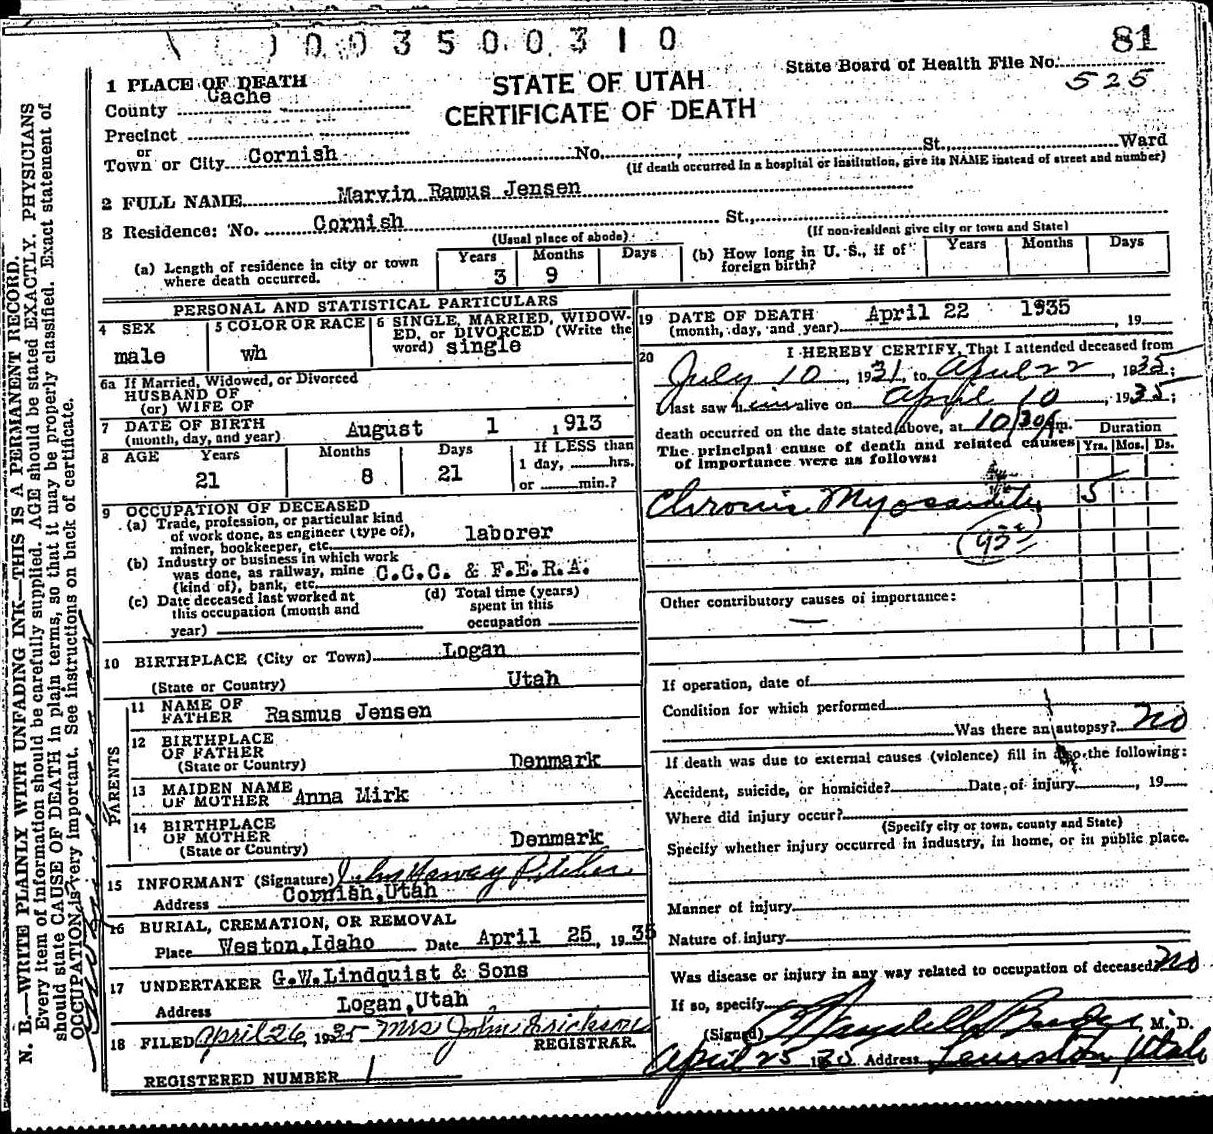 0 0 0 3 5 0 0 3 1 0
81
State Board of Health File No.
525
STATE OF UTAH
CERTIFICATE OF DEATH
1 PLACE OF DEATH
County Cache
Precinct
or
Town or City Cornish No. , St., Ward
(If death occurred in a hospital or institution, give its NAME instead of street and number)
2 FULL NAME Marvin Ramus Jensen
3 Residence: No. Cornish St.,
(Usual place of abode) (If non-resident give city or town and State)
(a) Length of residence in city or town where death occurred. Years 3 Months 9 Days
(b) How long in U. S., if of foreign birth? Years Months Days
PERSONAL AND STATISTICAL PARTICULARS
4 SEX male
5 COLOR OR RACE wh
6 SINGLE, MARRIED, WIDOWED, or DIVORCED (Write the word) single
6a If Married, Widowed, or Divorced
HUSBAND OF
(or) WIFE OF
7 DATE OF BIRTH
(month, day, and year) August 1 , 1913
8 AGE Years 21 Months 8 Days 21
If LESS than
1 day, hrs.
or min.?
9 OCCUPATION OF DECEASED
(a) Trade, profession, or particular kind
of work done, as engineer (type of),
miner, bookkeeper, etc. laborer
(b) Industry or business in which work
was done, as railway, mine C.C.C. & F.E.R.A.
(kind of), bank, etc.
(c) Date deceased last worked at
this occupation (month and
year)
(d) Total time (years)
spent in this
occupation
10 BIRTHPLACE (City or Town) Logan
(State or Country) Utah
PARENTS
11 NAME OF
FATHER Rasmus Jensen
12 BIRTHPLACE
OF FATHER
(State or Country) Denmark
13 MAIDEN NAME
OF MOTHER Anna Mirk
14 BIRTHPLACE
OF MOTHER
(State or Country) Denmark
15 INFORMANT (Signature) John Harvey Pitcher
Address Cornish,Utah
16 BURIAL, CREMATION, OR REMOVAL
Place Weston,Idaho Date April 25, 1935
17 UNDERTAKER G.W.Lindquist & Sons
Address Logan,Utah
18 FILED April 26, 1935 Mrs John Erickson
REGISTRAR.
REGISTERED NUMBER 1
19 DATE OF DEATH April 22 1935
(month, day, and year) , 19
20 I HEREBY CERTIFY, That I attended deceased from
July 10, 1931, to April 22, 1935;
I last saw him alive on April 10, 1935;
death occurred on the date stated above, at 10/30 A m.
The principal cause of death and related causes
of importance were as follows:
Duration
Yrs. Mos. Ds.
Chronic Myocarditis 5
Other contributory causes of importance:
If operation, date of
Condition for which performed
Was there an autopsy? No
If death was due to external causes (violence) fill in also the following:
Accident, suicide, or homicide? Date of injury , 19
Where did injury occur?
(Specify city or town, county and State)
Specify whether injury occurred in industry, in home, or in public place.
Manner of injury
Nature of injury
Was disease or injury in any way related to occupation of deceased No
If so, specify
(Signed) M. D.
April 25 Address Lewiston, Utah
N. B.—WRITE PLAINLY WITH UNFADING INK—THIS IS A PERMANENT RECORD.
Every item of information should be carefully supplied. AGE should be stated EXACTLY. PHYSICIANS
should state CAUSE OF DEATH in plain terms, so that it may be properly classified. Exact statement of
OCCUPATION is very important. See instructions on back of certificate.